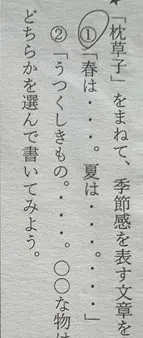 「枕草子」をまねて、季節感を表す文章を
①「春は・・・。夏は・・・・。・・・」
②「うつくしきもの。・・・。〇〇な物は
どちらかを選んで書いてみよう。